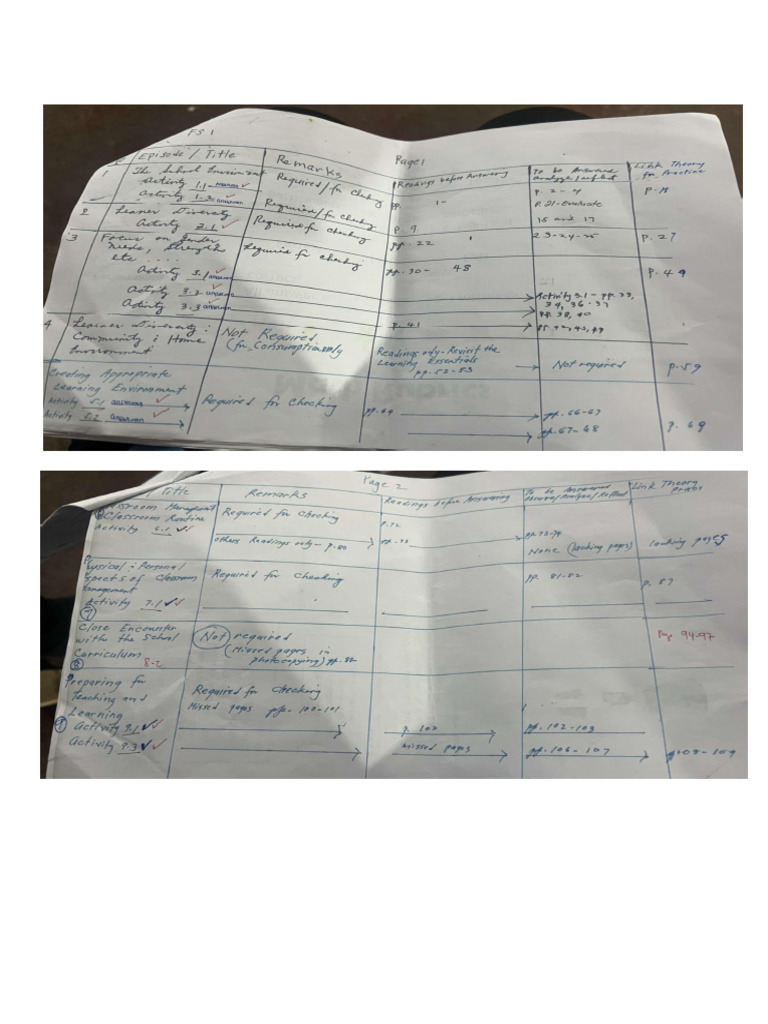 FS 1
Page 1
Episode / Title
Remarks
Readings before Answering
To be Answered
analyze / reflect
Link Theory
for Practice
1
The School Environment
Activity 1.1
Activity 1.2
Required / for Checking
Required / for Checking
p. 2 - 4
P. 21 - evaluate
p. 18
2
Learner Diversity
Activity 2.1
Required for Checking
p. 9
pp. 22
15 and 17
23-24-25
p. 27
3
Focus on Gender
Needs, Strengths
etc ....
Activity 3.1
Activity 3.2
Activity 3.3
Required for Checking
pp. 30 - 48
p. 41
Activity 3.1 - pp. 33,
34, 36-37
pp. 38, 40
p. 49
4
Learner Diversity:
Community & Home
Environment
Not Required
(for Consumption only
Readings only - Revisit the
Learning Essentials
pp. 52-53
Not required
p. 59
Creating Appropriate
Learning Environment
Activity 5.1
Activity 5.2
Required for Checking
pp. 64
pp. 66-67
pp. 67-68
p. 69
Page 2
Title
Remarks
Readings before Answering
To be Answered
Link Theory
Classroom Management
Classroom Routine
Activity 6.1
Required for Checking
others Readings only - p. 80
p. 72
pp. 73
pp. 73-74
None (lacking pages)
lacking pages
Physical & Personal
Aspects of Classroom
Management
Activity 7.1
7
Required for Checking
pp. 81-82
p. 87
Close Encounter
with the School
Curriculum
8
8-2
Not required
(Missed pages in
photocopying) pp. 88
94-97
Preparing for
Teaching and
Learning
9
Activity 9.1
Activity 9.3
Required for Checking
Missed pages pp. 100-101
p. 102
missed pages
pp. 102-103
pp. 106 - 107